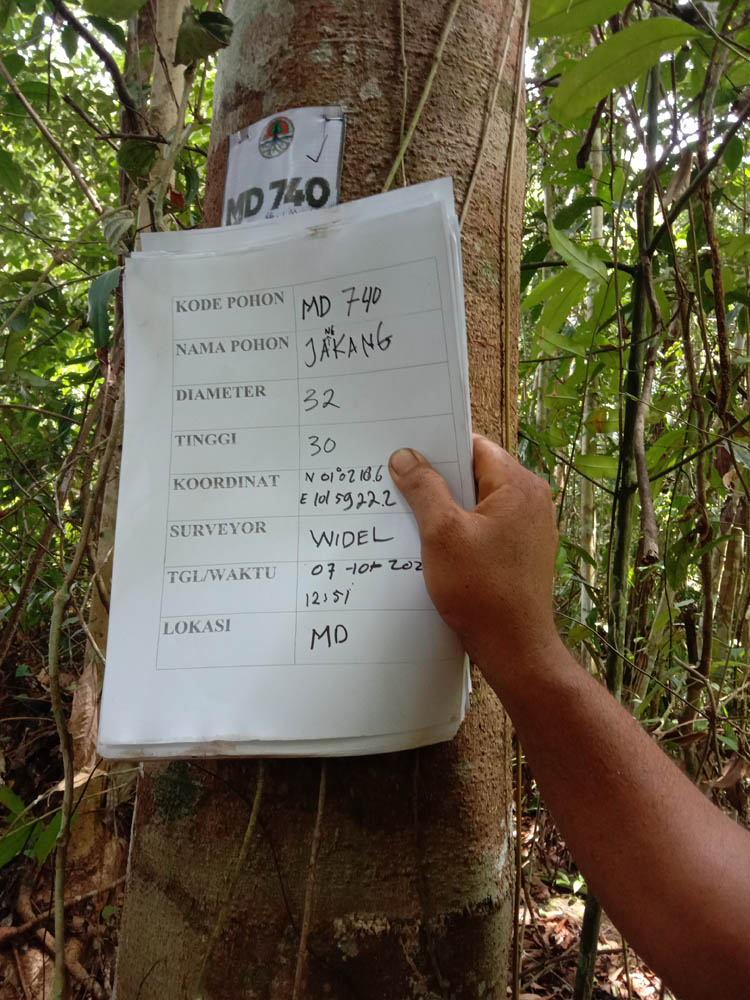 MD 740
KODE POHON MD 740
NAMA POHON JANGKANG
DIAMETER 32
TINGGI 30
KOORDINAT N 01°0218.6
E 101 5922.2
SURVEYOR WIDEL
TGL/WAKTU 07-10-202
12:51
LOKASI MD